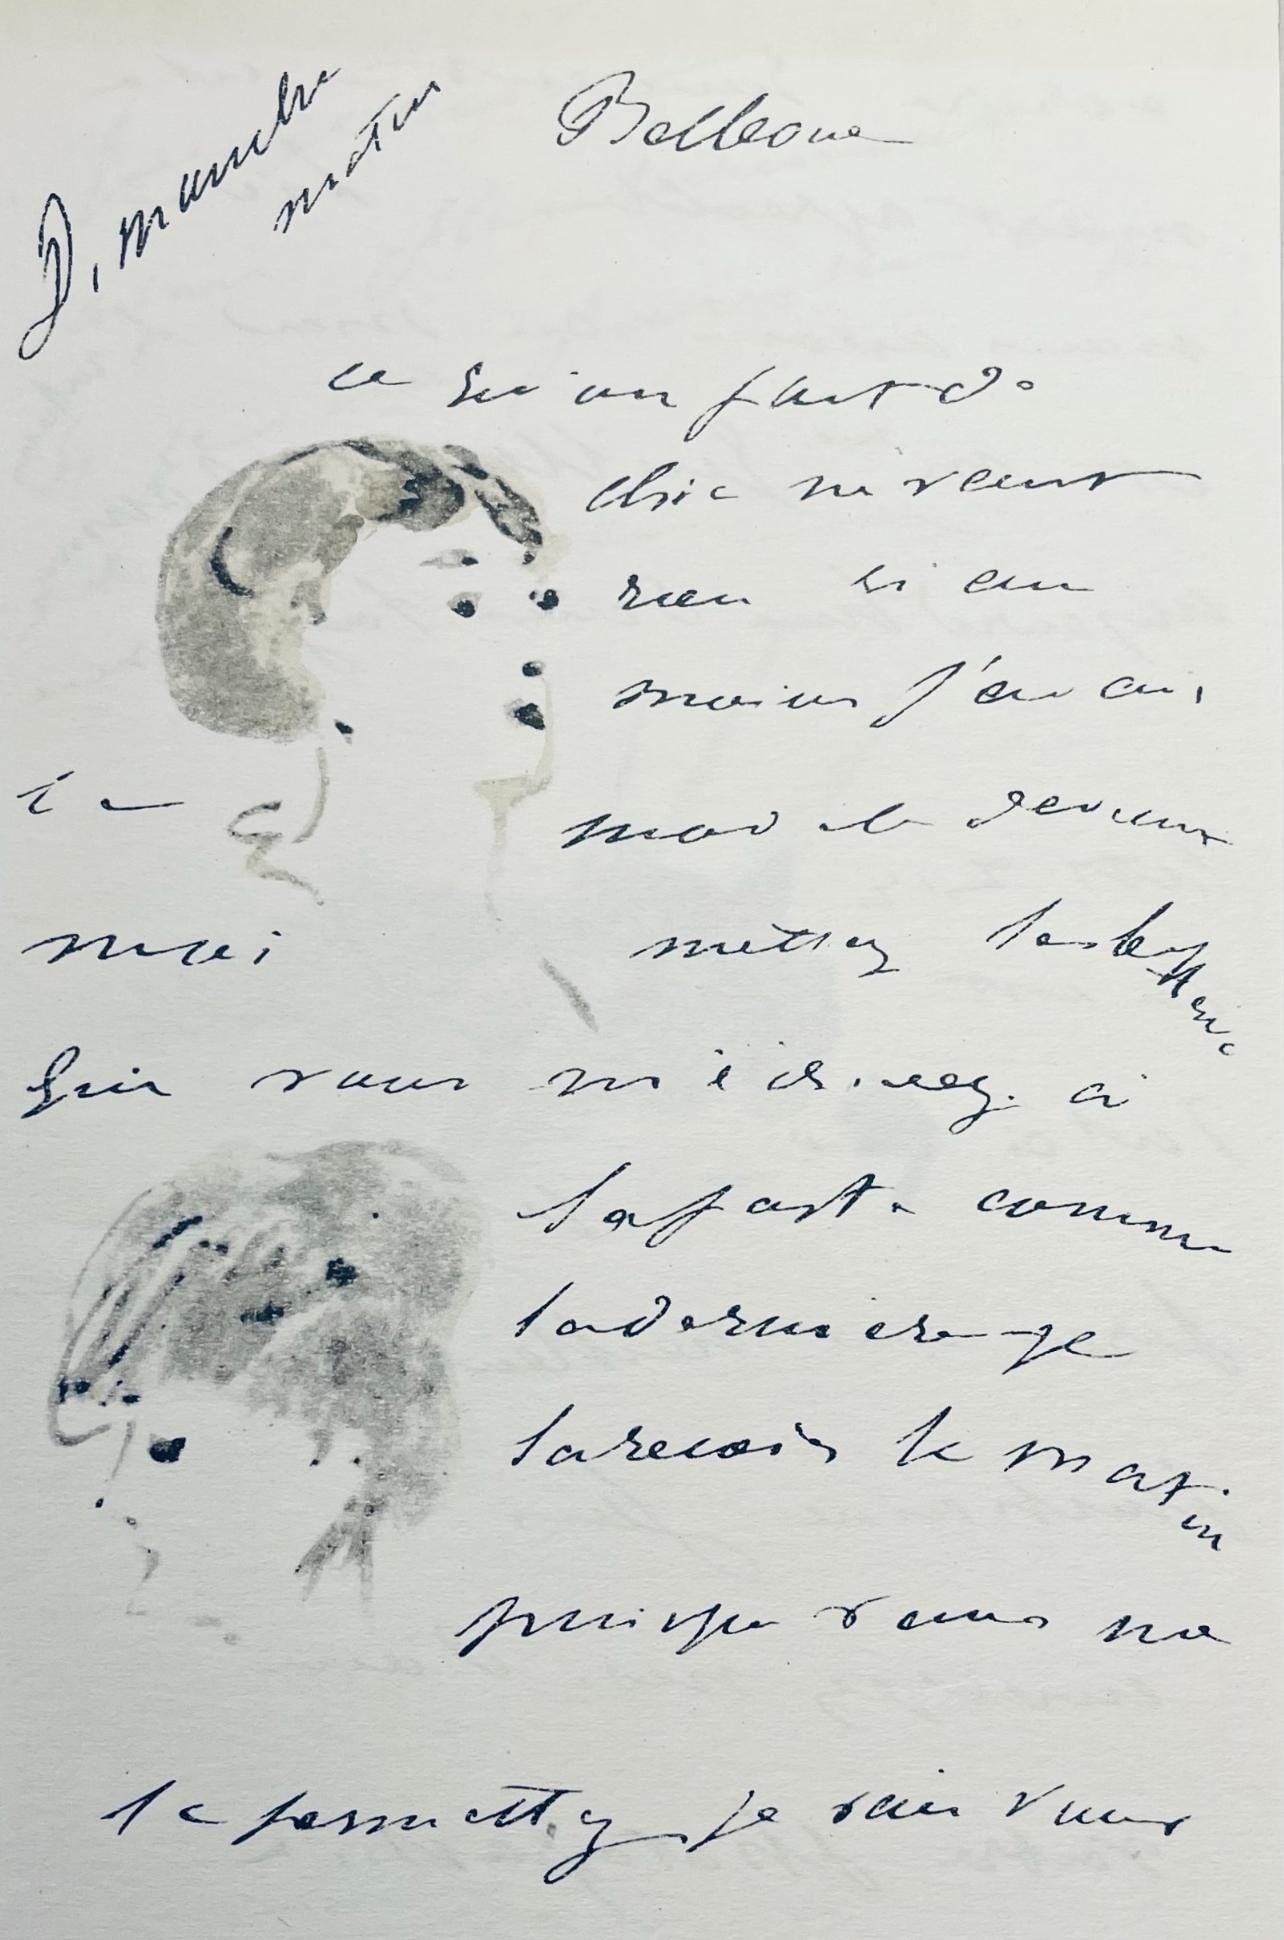 Dimanche
matin
Bellevue
ce qu'on fait de
chic ne vaut
rien si au
moins j'avais
le modèle devant
moi mettez la lettre
que vous m'écrirez à
la poste comme
la dernière je
la reçois le matin
puisque vous me
le permettez je vais vous